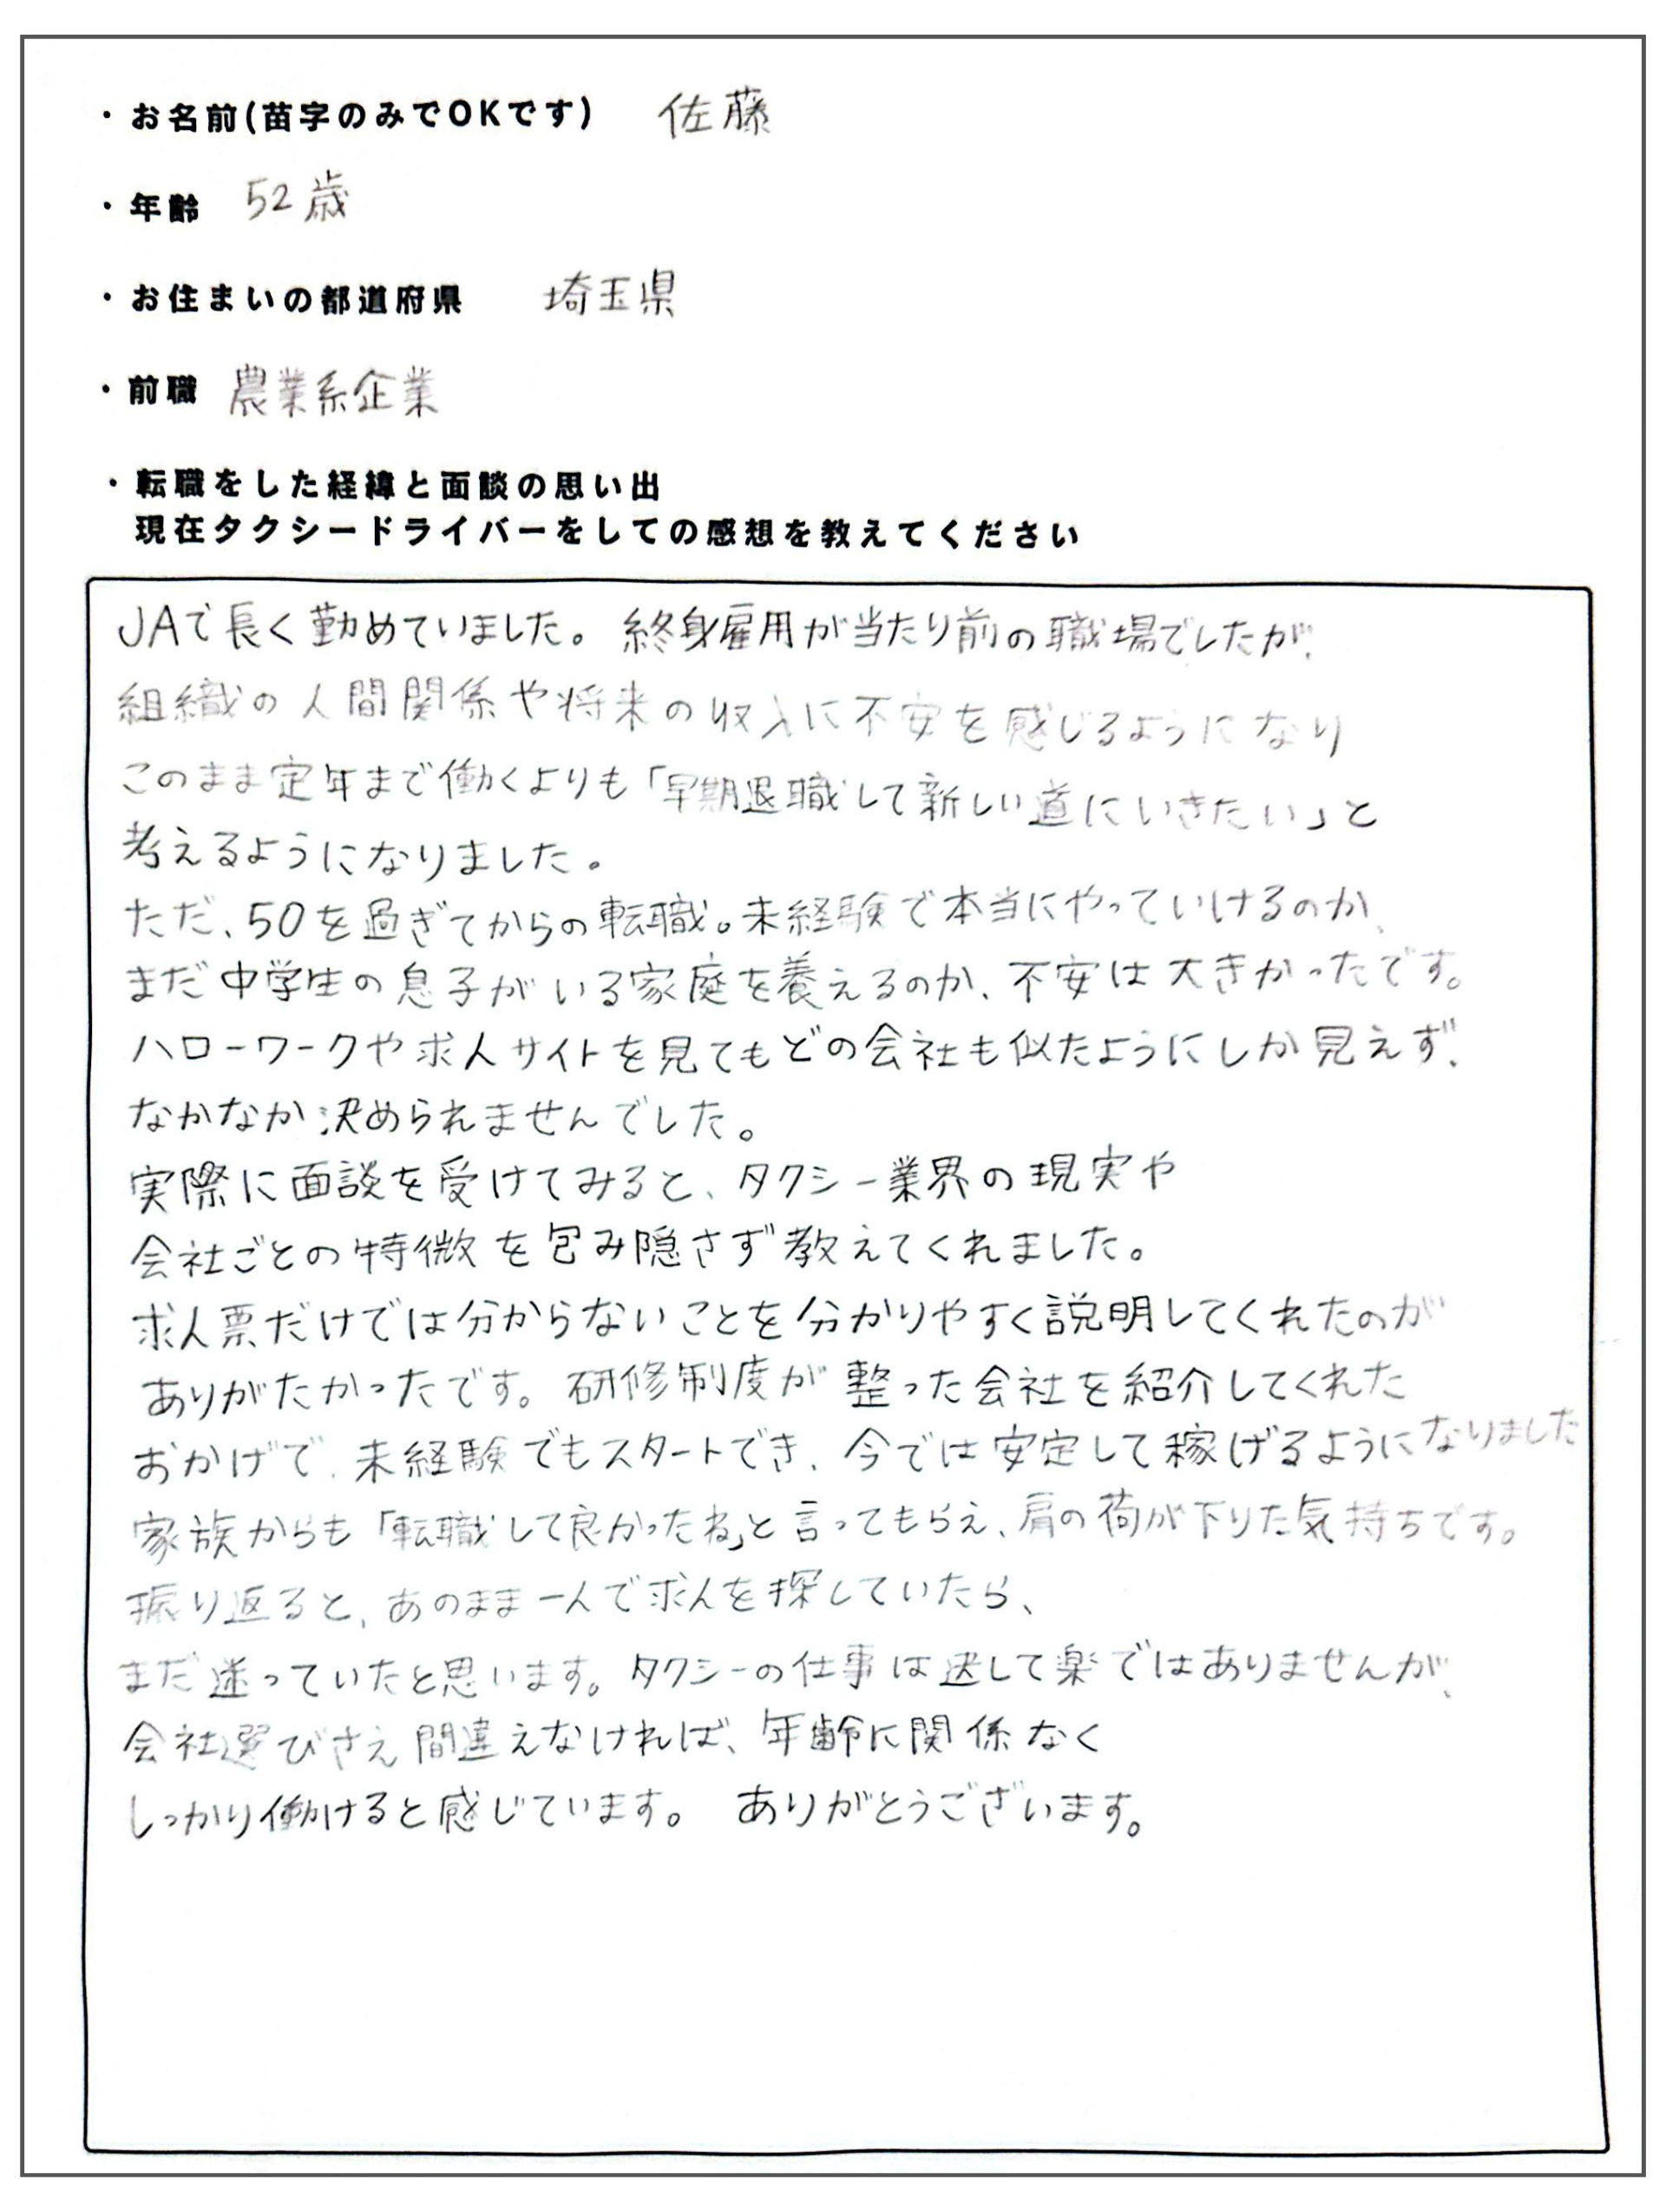 ・お名前(苗字のみでOKです) 佐藤
・年齢 52歳
・お住まいの都道府県 埼玉県
・前職 農業系企業
・転職をした経緯と面談の思い出
現在タクシードライバーをしての感想を教えてください
JAで長く勤めていました。終身雇用が当たり前の職場でしたが、
組織の人間関係や将来の収入に不安を感じるようになり
このまま定年まで働くよりも「早期退職して新しい道にいきたい」と
考えるようになりました。
ただ、50を過ぎてからの転職。未経験で本当にやっていけるのか、
まだ中学生の息子がいる家庭を養えるのか、不安は大きかったです。
ハローワークや求人サイトを見てもどの会社も似たようにしか見えず、
なかなか決められませんでした。
実際に面談を受けてみると、タクシー業界の現実や
会社ごとの特徴を包み隠さず教えてくれました。
求人票だけでは分からないことを分かりやすく説明してくれたのが
ありがたかったです。研修制度が整った会社を紹介してくれた
おかげで、未経験でもスタートでき、今では安定して稼げるようになりました
家族からも「転職して良かったね」と言ってもらえ、肩の荷が下りた気持ちです。
振り返ると、あのまま一人で求人を探していたら、
まだ迷っていたと思います。タクシーの仕事は決して楽ではありませんが、
会社選びさえ間違えなければ、年齢に関係なく
しっかり働けると感じています。 ありがとうございます。